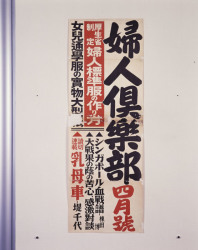 婦人倶樂部
四月號
厚生省
制定
婦人標準服の作り方
女兒通學服の實物大型
シンガポール血戰話
大戰果の蔭の苦心、感激對談
乳母車
堤千代